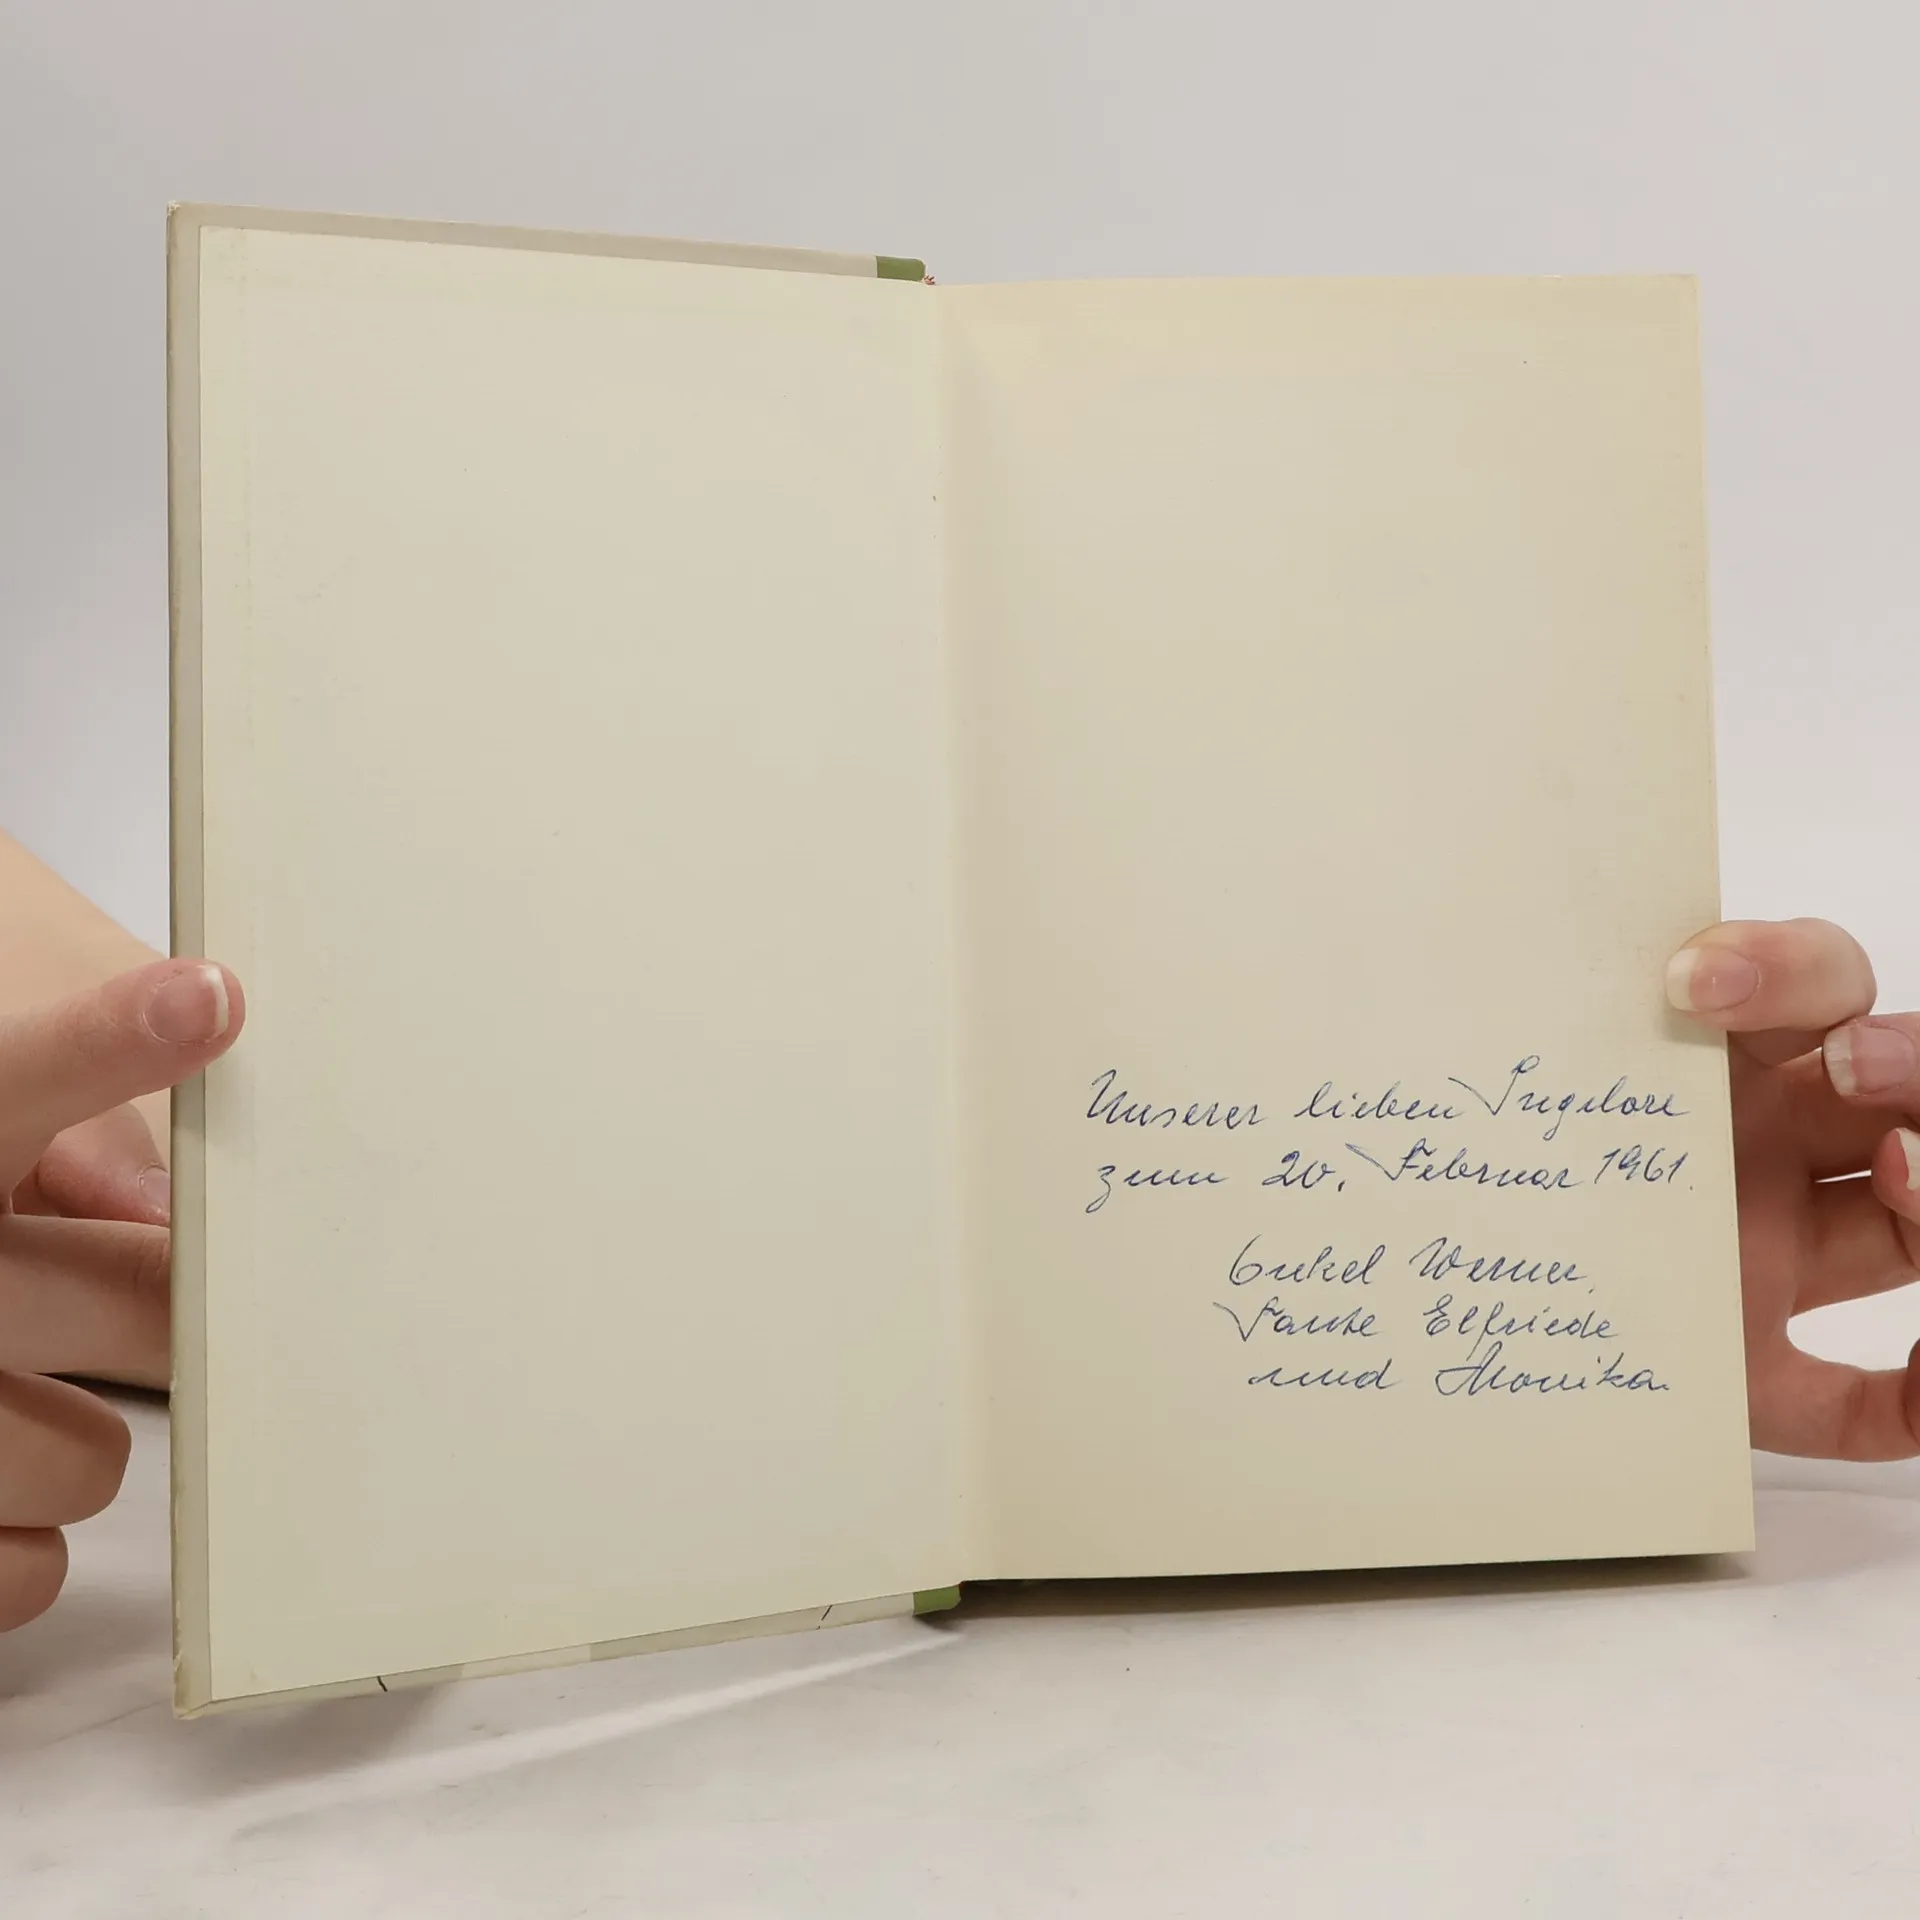 Unserer lieben Ingelore
zum 20. Februar 1961.
Onkel Werner,
Tante Elfriede
und Monika.